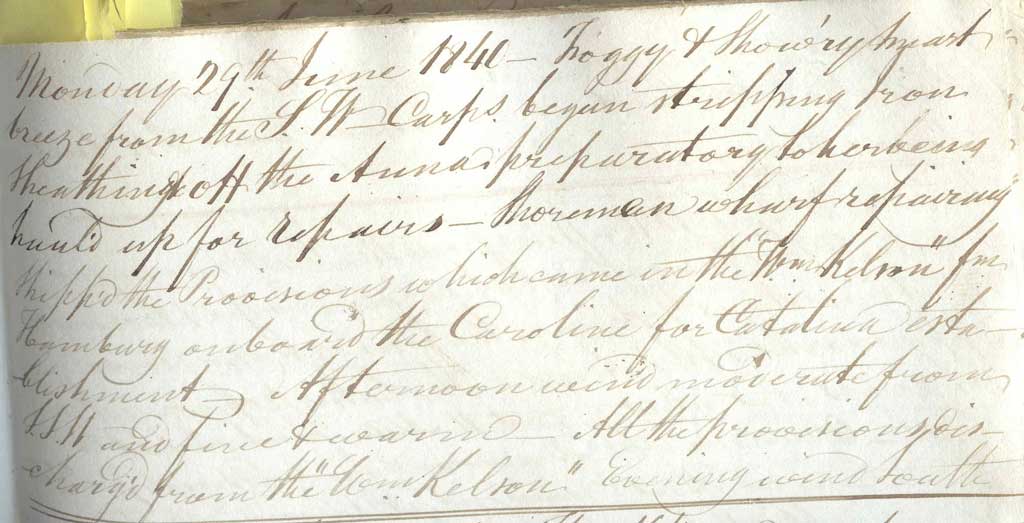 Monday 29th June 1840 - Foggy & Show'ry smart
breeze from the S.W - Carps. began stripping Iron
sheathing off the Anna preparatory to her being
hauld up for repairs - Shoremen wharf repairing
Shipp'd the Provisions which came in the "Wm Kelson" fm
Hamburg onboard the Caroline for Catalina esta-
blishment - Afternoon wind moderate from
S.S.W and fine & warm - All the provisions dis-
charg'd from the "Wm Kelson" Evening wind South